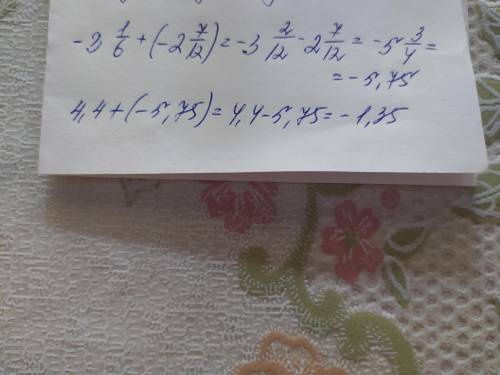 -3 1/6 + (-2 7/12) = -3 2/12 - 2 7/12 = -5 3/4 =
= -5,75
4,4 + (-5,75) = 4,4 - 5,75 = -1,35